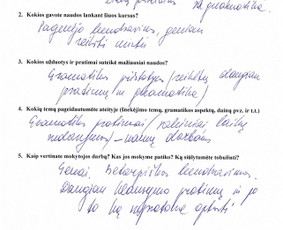 gramatika.
2. Kokios gavote naudos lankant šiuos kursus?
Pagerėjo bendravimas, geriau
reikšti mintis
3. Kokios užduotys ir pratimai suteikė mažiausiai naudos?
Gramatikos pildytos (reikėtų daugiau
pratimų in gramatika)
4. Kokių temų pageidautumėte ateityje (šnekėjimo temų, gramatikos aspektų, dainų pvz. ir t.t.)
Gramatikos pratimai / laikų
– namų darbams
5. Kaip vertinate mokytojos darbą? Kas jos mokyme patiko? Ką siūlytumėte tobulinti?
Gerai. Betarpiškas bendravimas.
Daugiau klausymo pratimų ir po
to ką aptarti